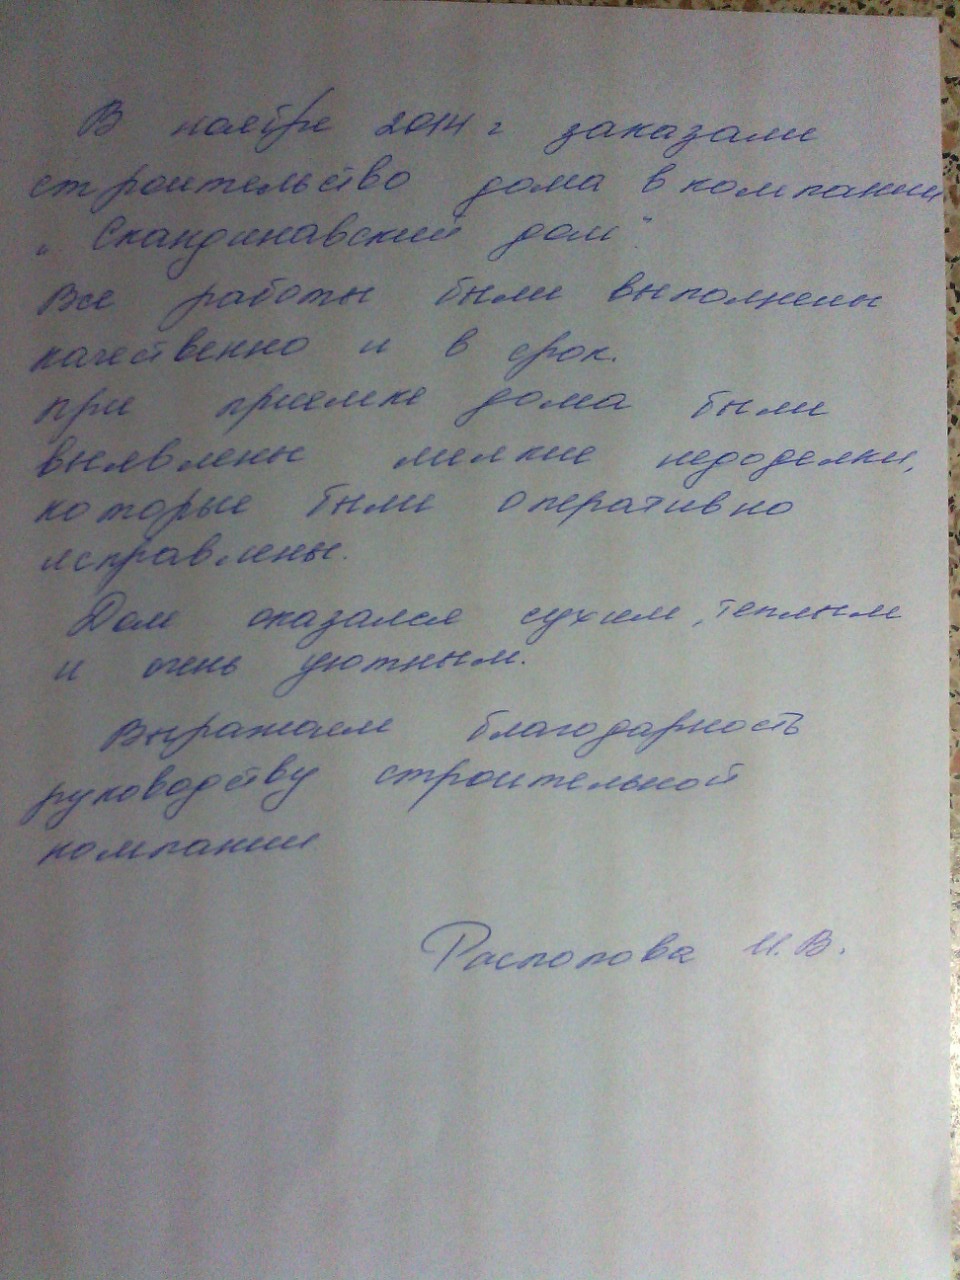 В ноябре 2014 г заказали
строительство дома в компании
„Скандинавский дом".
Все работы были выполнены
качественно и в срок.
при приемке дома были
выявлены мелкие недоделки,
которые были оперативно
исправлены.
Дом оказался сухим, теплым
и очень уютным.
Выражаем благодарность
руководству строительной
компании
Распопова И.В.